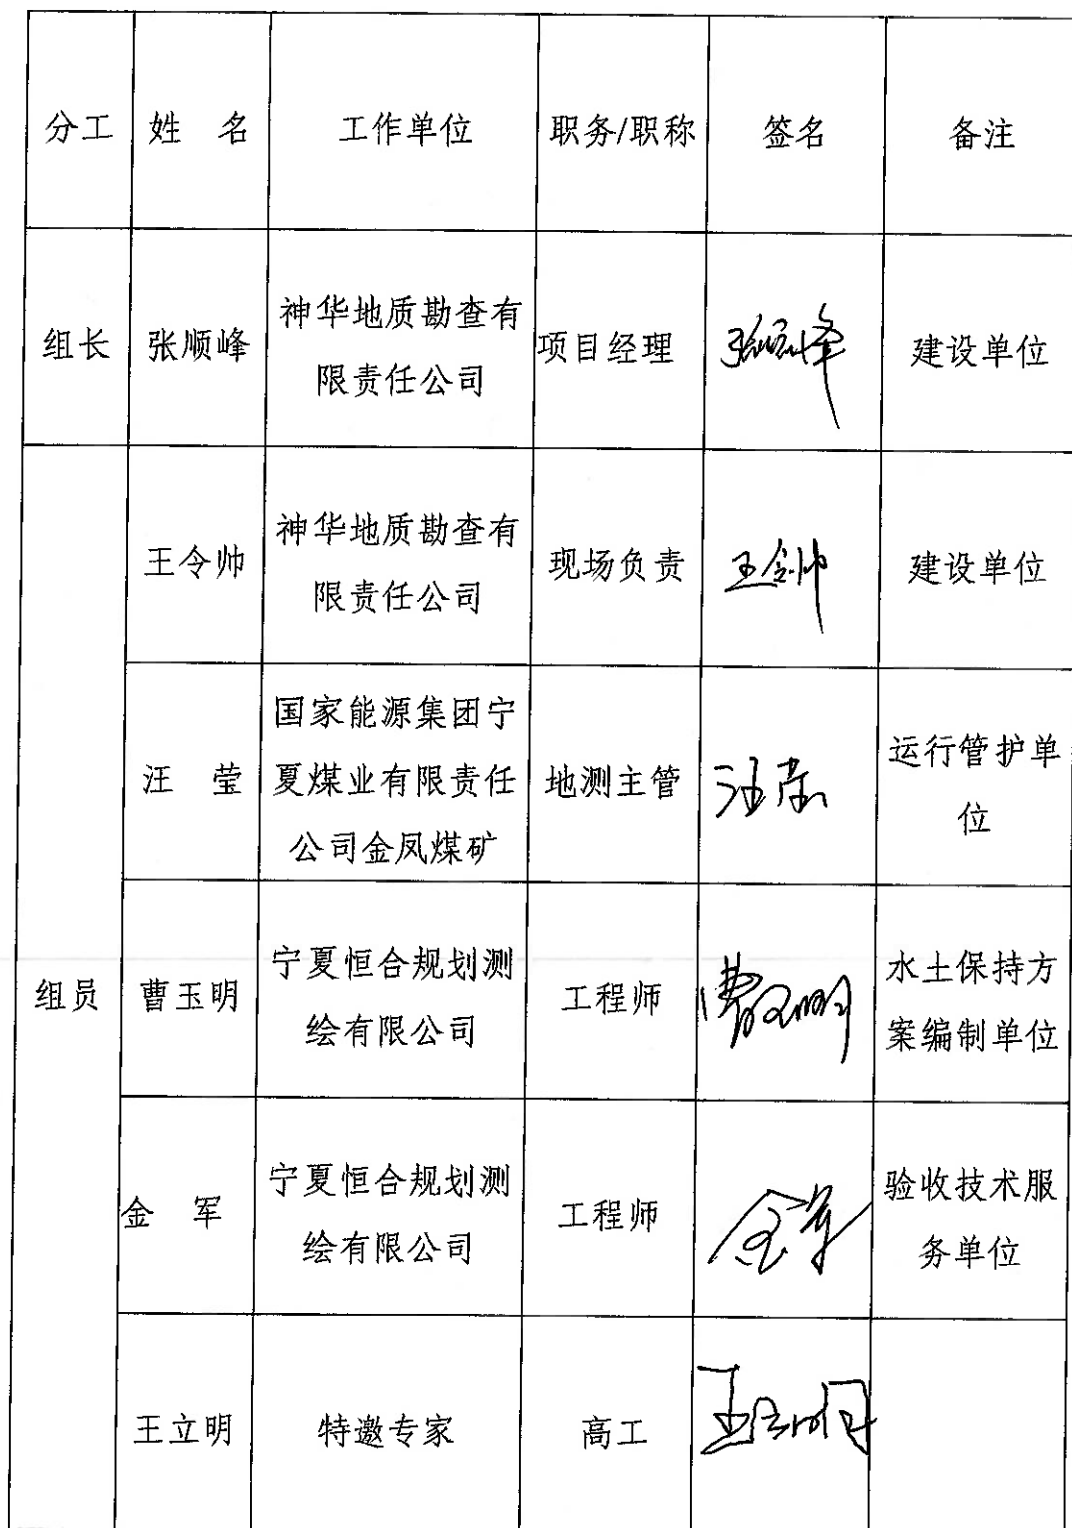 分工 姓 名 工作单位 职务/职称 签名 备注
组长 张顺峰 神华地质勘查有
限责任公司 项目经理 张顺峰 建设单位
组员
王令帅 神华地质勘查有
限责任公司 现场负责 王令帅 建设单位
汪 莹 国家能源集团宁
夏煤业有限责任
公司金凤煤矿 地测主管 汪莹 运行管护单
位
曹玉明 宁夏恒合规划测
绘有限公司 工程师 曹玉明 水土保持方
案编制单位
金 军 宁夏恒合规划测
绘有限公司 工程师 金军 验收技术服
务单位
王立明 特邀专家 高工 王立明